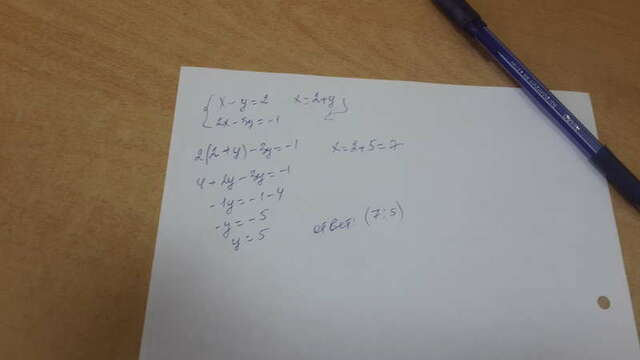 { x - y = 2     x = 2 + y
{ 2x - 3y = -1
2(2 + y) - 3y = -1     x = 2 + 5 = 7
4 + 2y - 3y = -1
-1y = -1 - 4
-y = -5
y = 5
Ответ: (7; 5)